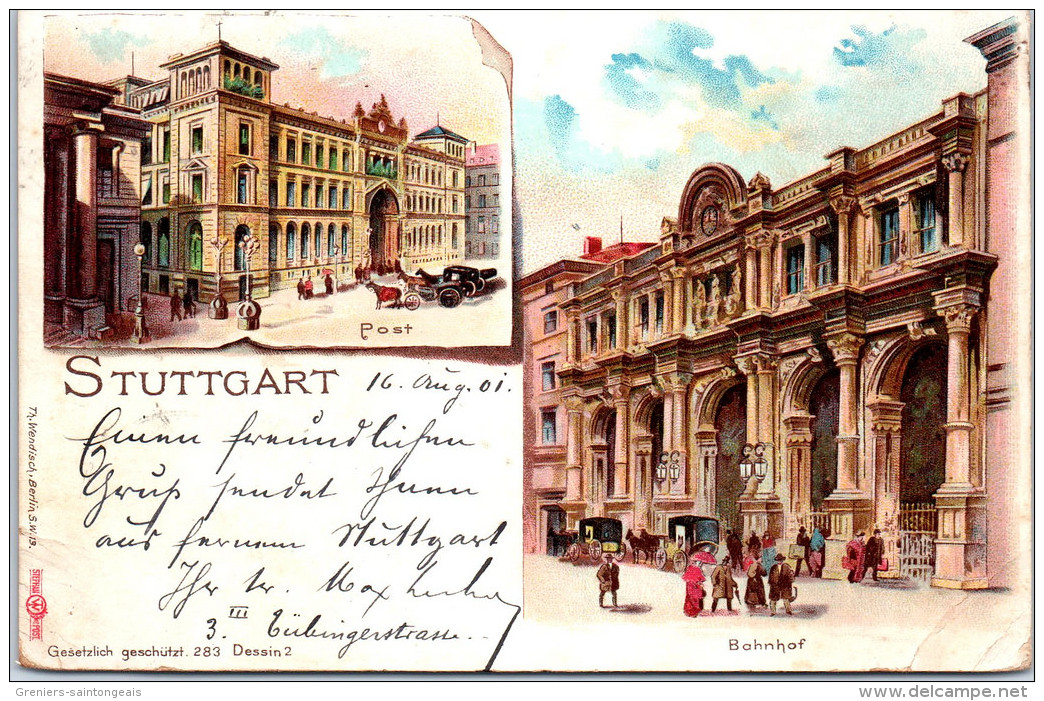 Post
STUTTGART 16. Aug. 01.
Einen freundlichen
Gruß sendet Ihnen
aus fernem Stuttgart
Ihr tr. Max
III
3. Tübingerstrasse.
Gesetzlich geschützt. 283 Dessin 2
Th. Wendisch, Berlin S.W. 13.
Bahnhof
Greniers-saintongeais
delcampe.net